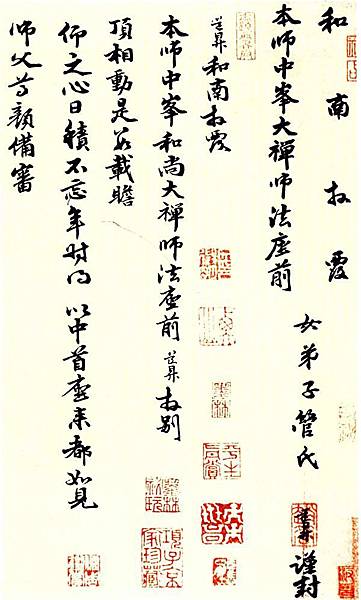 和南拜覆
本師中峯大禪師法座前
女弟子管氏道昇謹封
道昇和南拜覆
本師中峯和尚大禪師法座前道昇拜別
頂相動是數載瞻
仰之心日積不忘年時得以中首座來都如見
師父尊顏備審